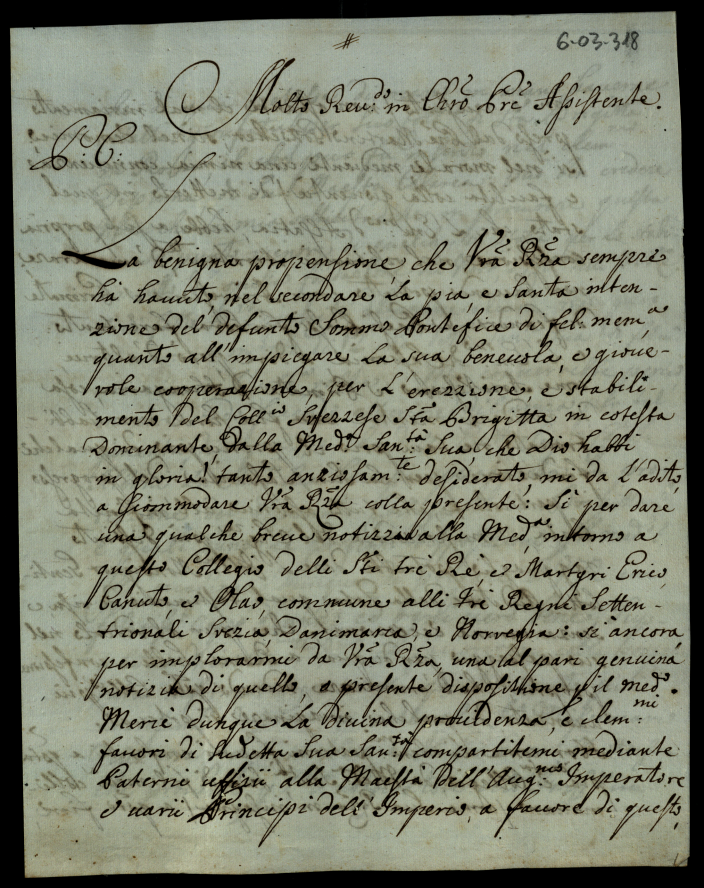 #
6-03-318
Molto Reu:do in Chrō Prē Assistente.
P. C.
La benigna propensione, che Vrã Rzã sempre
hà hauuto nel secondare La pia, e Santa inten-
zione del defunto Sommo Pontefice di fel: mem:a
quanto all' impiegare La sua beneuola, e gioue-
vole cooperazione, per L'erezzione, e stabili-
mento del Collio Svezzese Sta Brigitta in cotesta
Dominante, dalla Meda: Santà: Sua, che Dio habbi
in gloria! tanto anziosamte: desiderato, mi da L'adito,
a scommodare Vrã Rzã colla presente: Sì per dare
una qualche breue notizzia alla Meda: intorno a
questo Collegio delli Sti trè Rè, e Martyri Erico,
Canuto, e Olao, commune alli trè Regni Setten-
trionali Svezia, Danimarca, e Norvegia: sì ancora,
per implorarmi da Vrã Rzã, una al pari genuina
notizia di quello, e presente dispositione p il medo.
Mercè dunque La Diuina prouidenza, e clemmi:
fauori di sudetta Sua Santà: compartitemi mediante
Paterni uffizii alla Maestà dell' Augmo: Imperatore
e varii Principi dell' Imperio, a fauore di questo